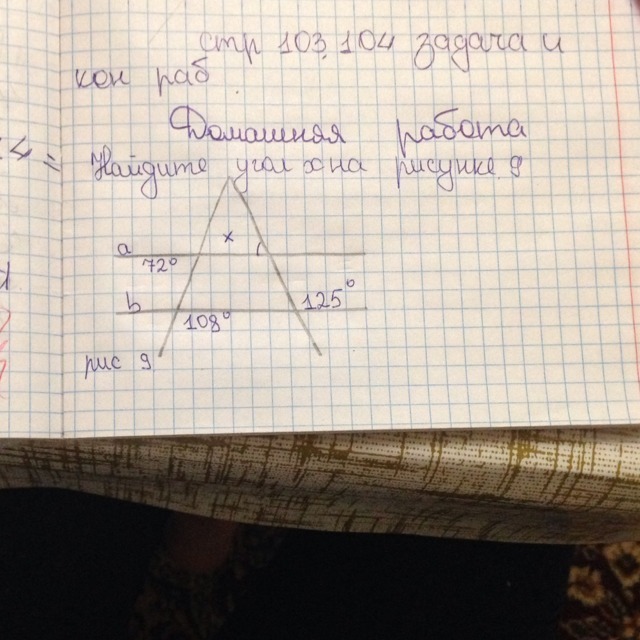 стр 103, 104 задача и
кон раб
Домашняя работа
Найдите угол x на рисунке 9
x
a
72°
b
125°
108°
рис 9
4 =